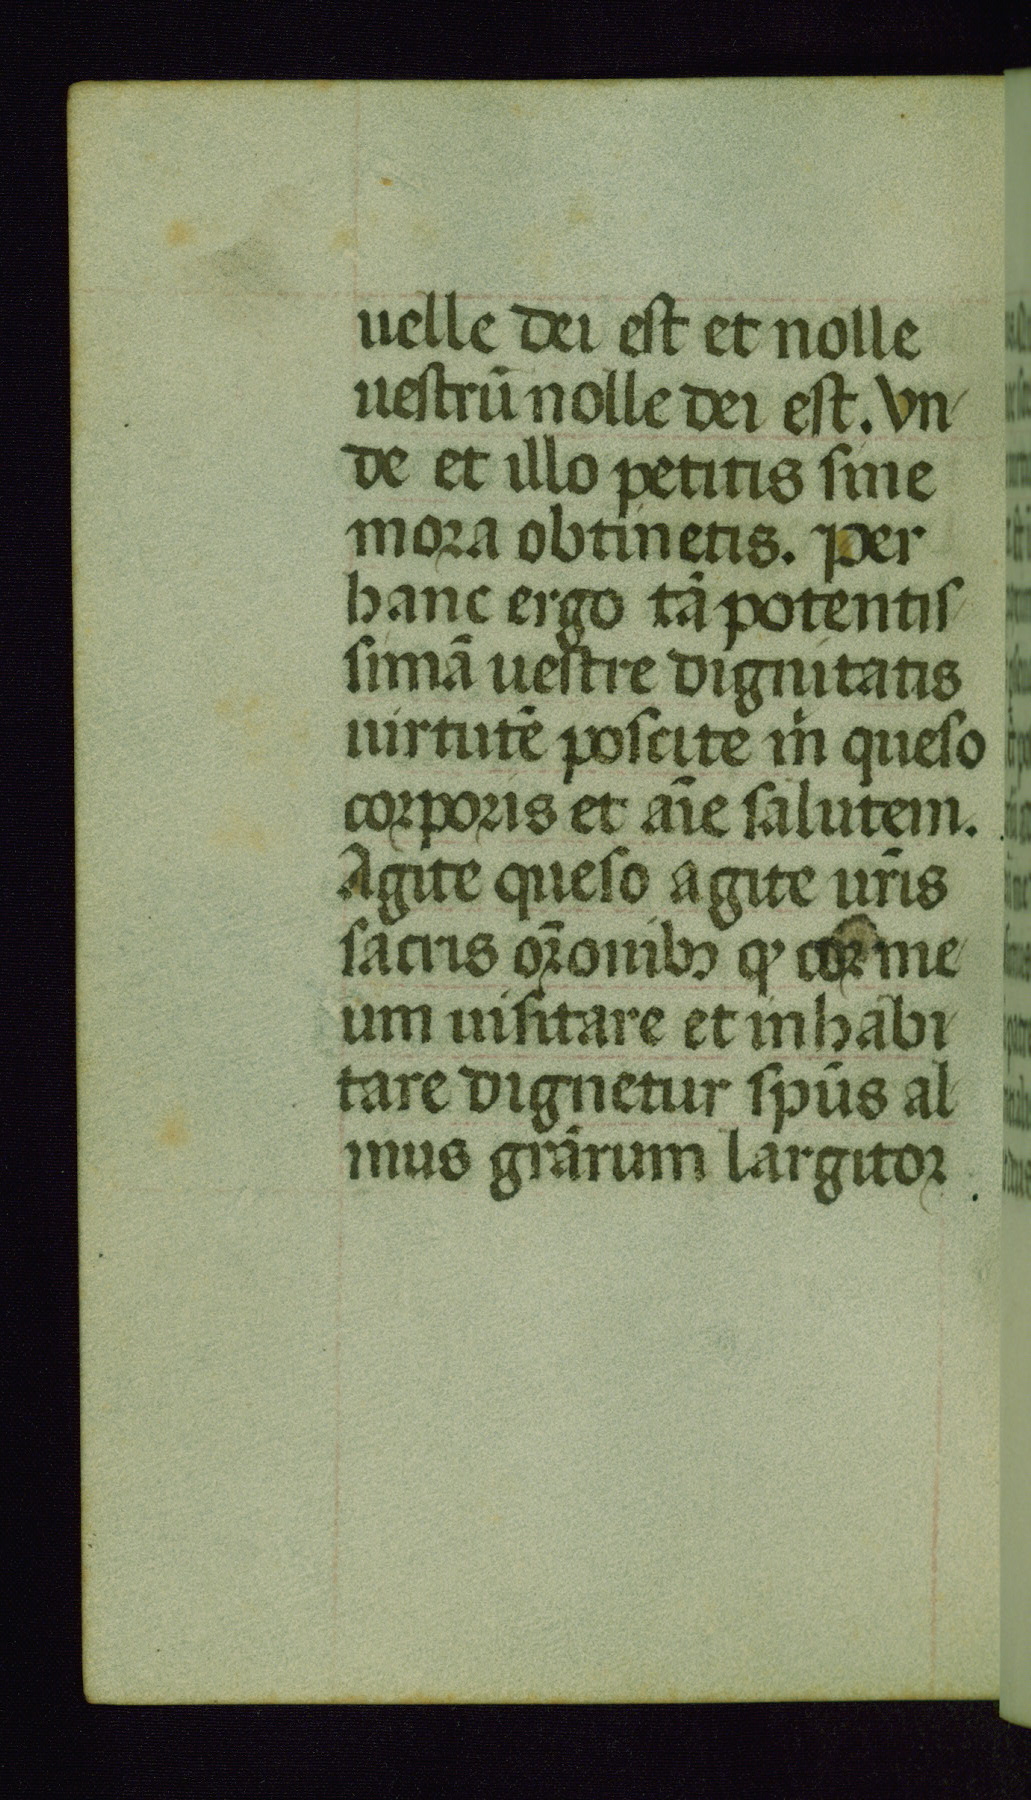 uelle dei est et nolle
uestrū nolle dei est. Vn-
de et illo petitis sine
mora obtinetis. Per
hanc ergo tā potentis-
simā uestre dignitatis
uirtutē poscite m̄ queso
corporis et aīe salutem.
Agite queso agite ur̄is
sacris or̄onibꝫ ꝙ cor me-
um uisitare et inhabi-
tare dignetur spūs al-
mus grārum largitor.